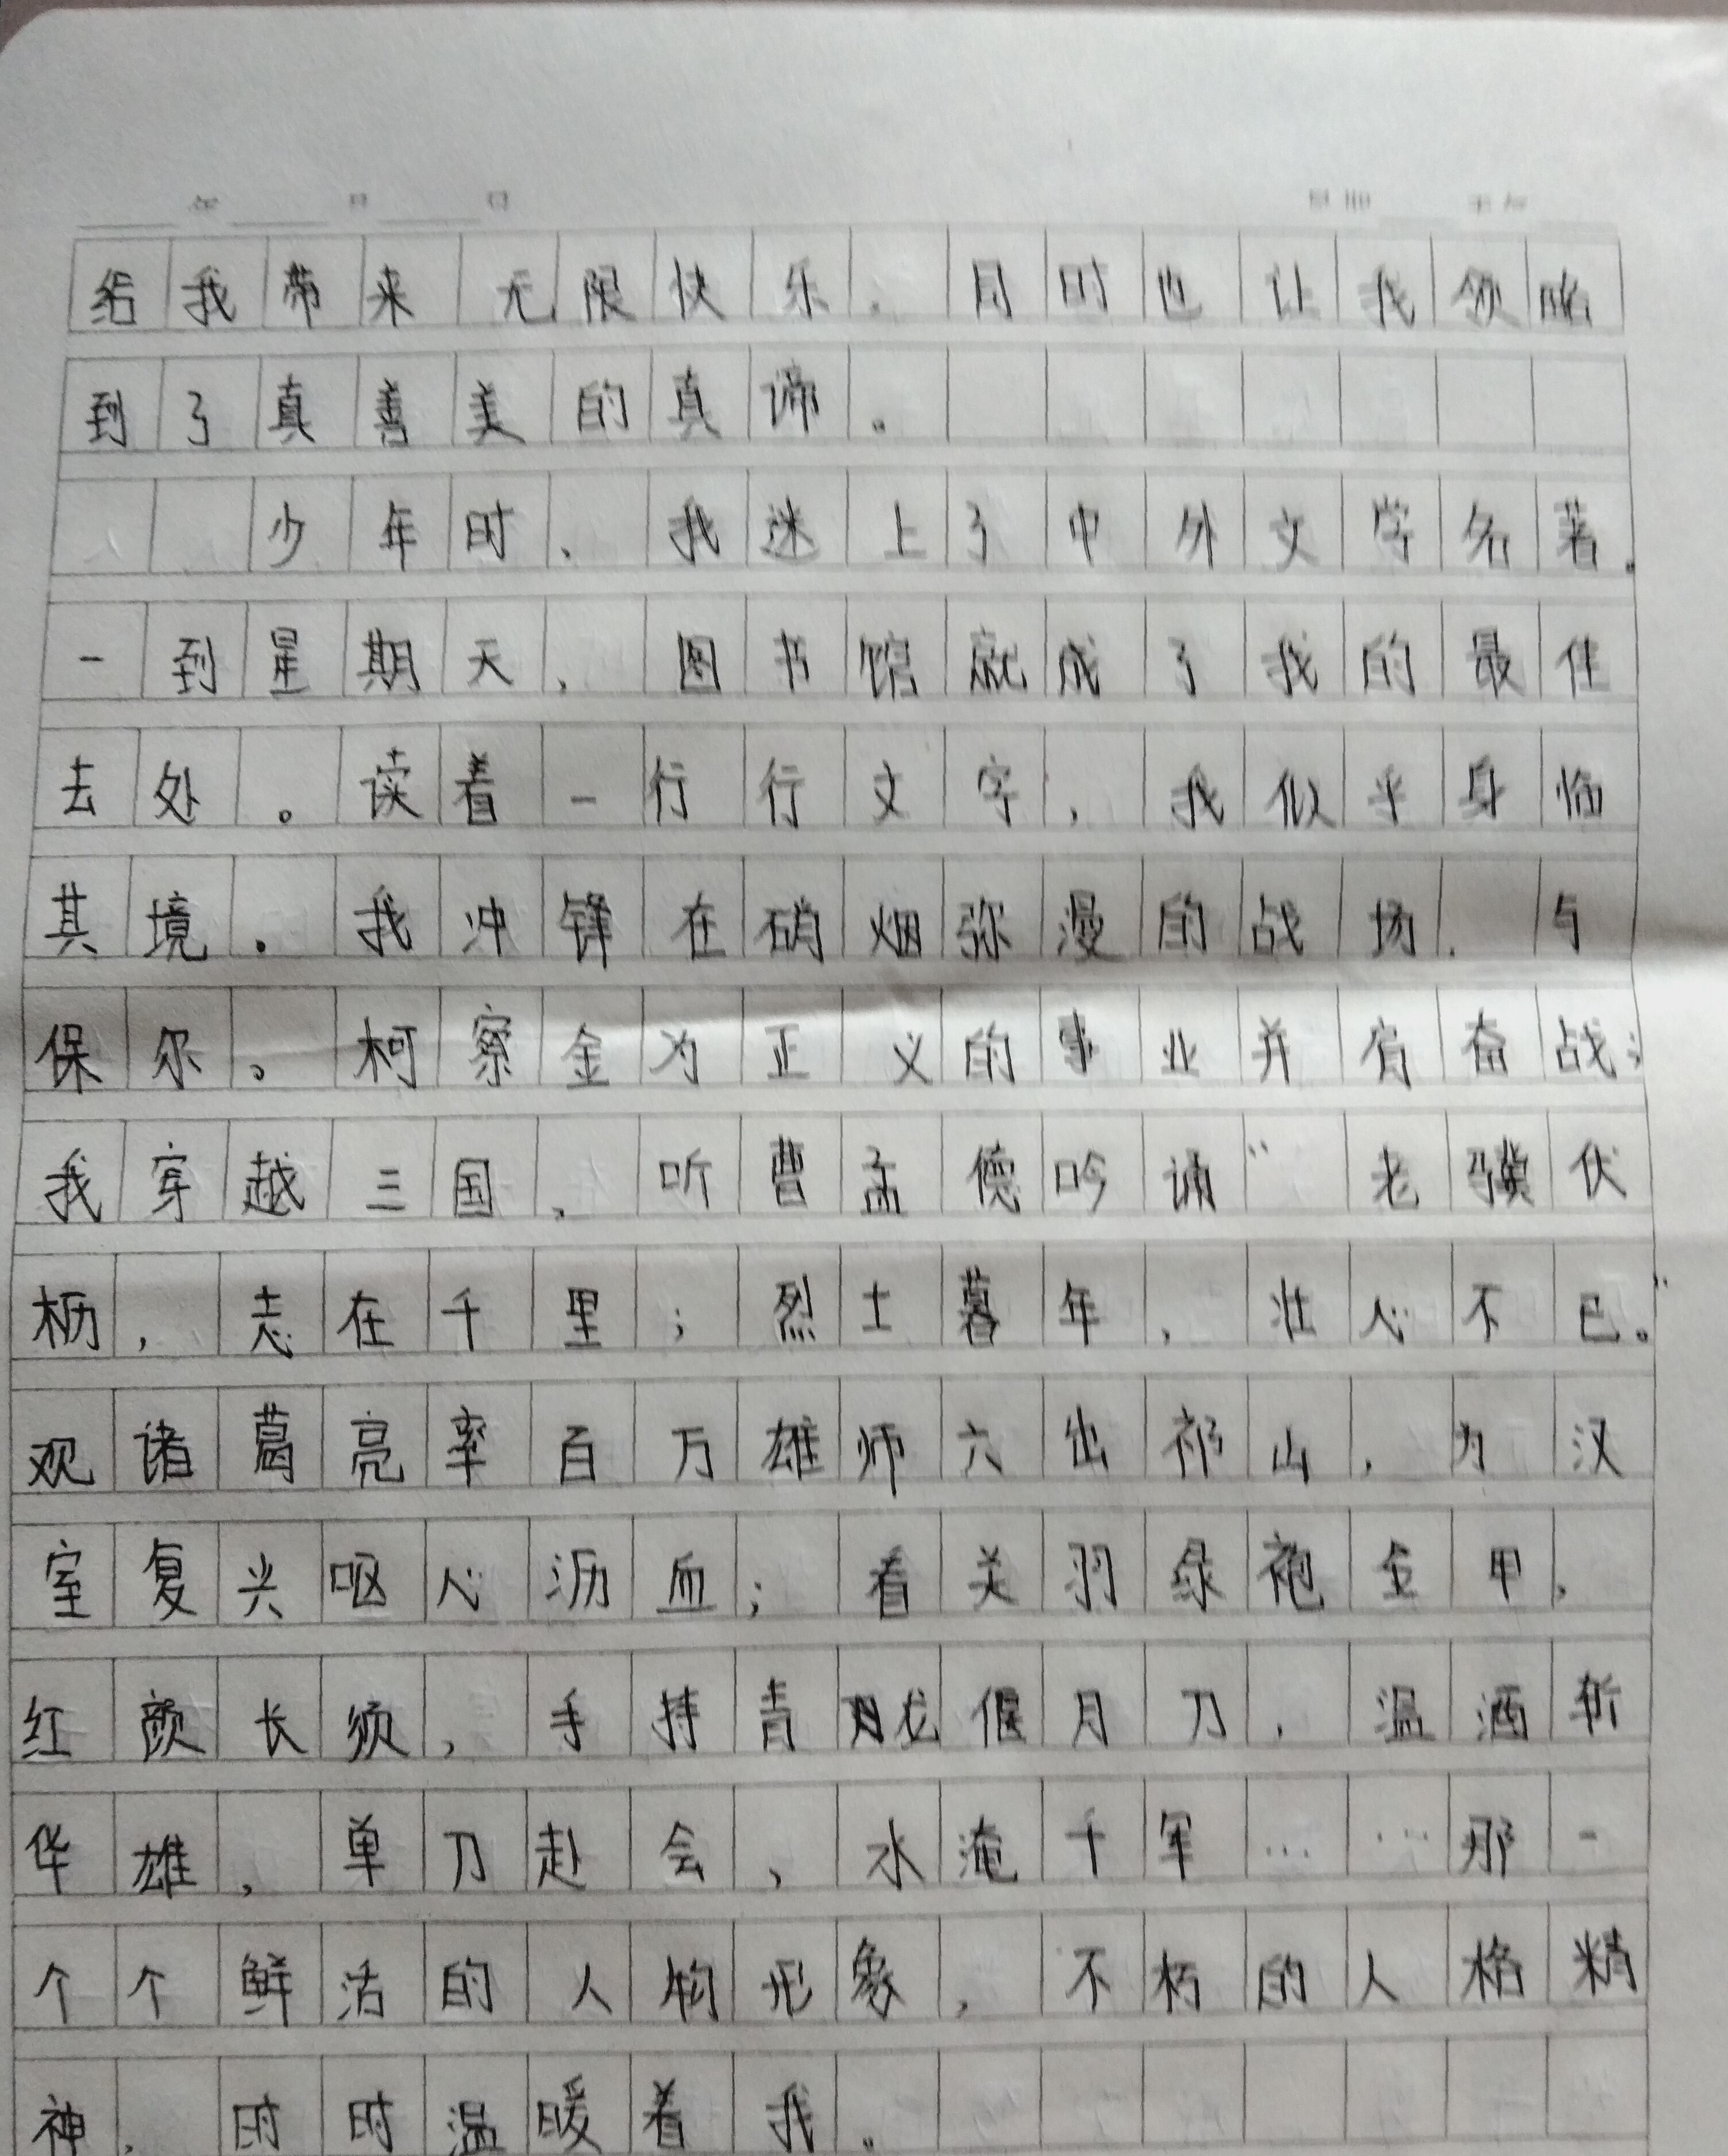 年 月 日 星期 天气
给我带来无限快乐。同时也让我领略
到了真善美的真谛。
少年时，我迷上了中外文学名著。
一到星期天，图书馆就成了我的最佳
去处。读着一行行文字，我似乎身临
其境。我冲锋在硝烟弥漫的战场，与
保尔。柯察金为正义的事业并肩奋战；
我穿越三国，听曹孟德吟诵“老骥伏
枥，志在千里；烈士暮年，壮心不已。”
观诸葛亮率百万雄师六出祁山，为汉
室复兴呕心沥血；看关羽绿袍金甲，
红颜长须，手持青龙偃月刀，温酒斩
华雄，单刀赴会，水淹千军……那一
个个鲜活的人物形象，不朽的人格精
神，时时温暖着我。